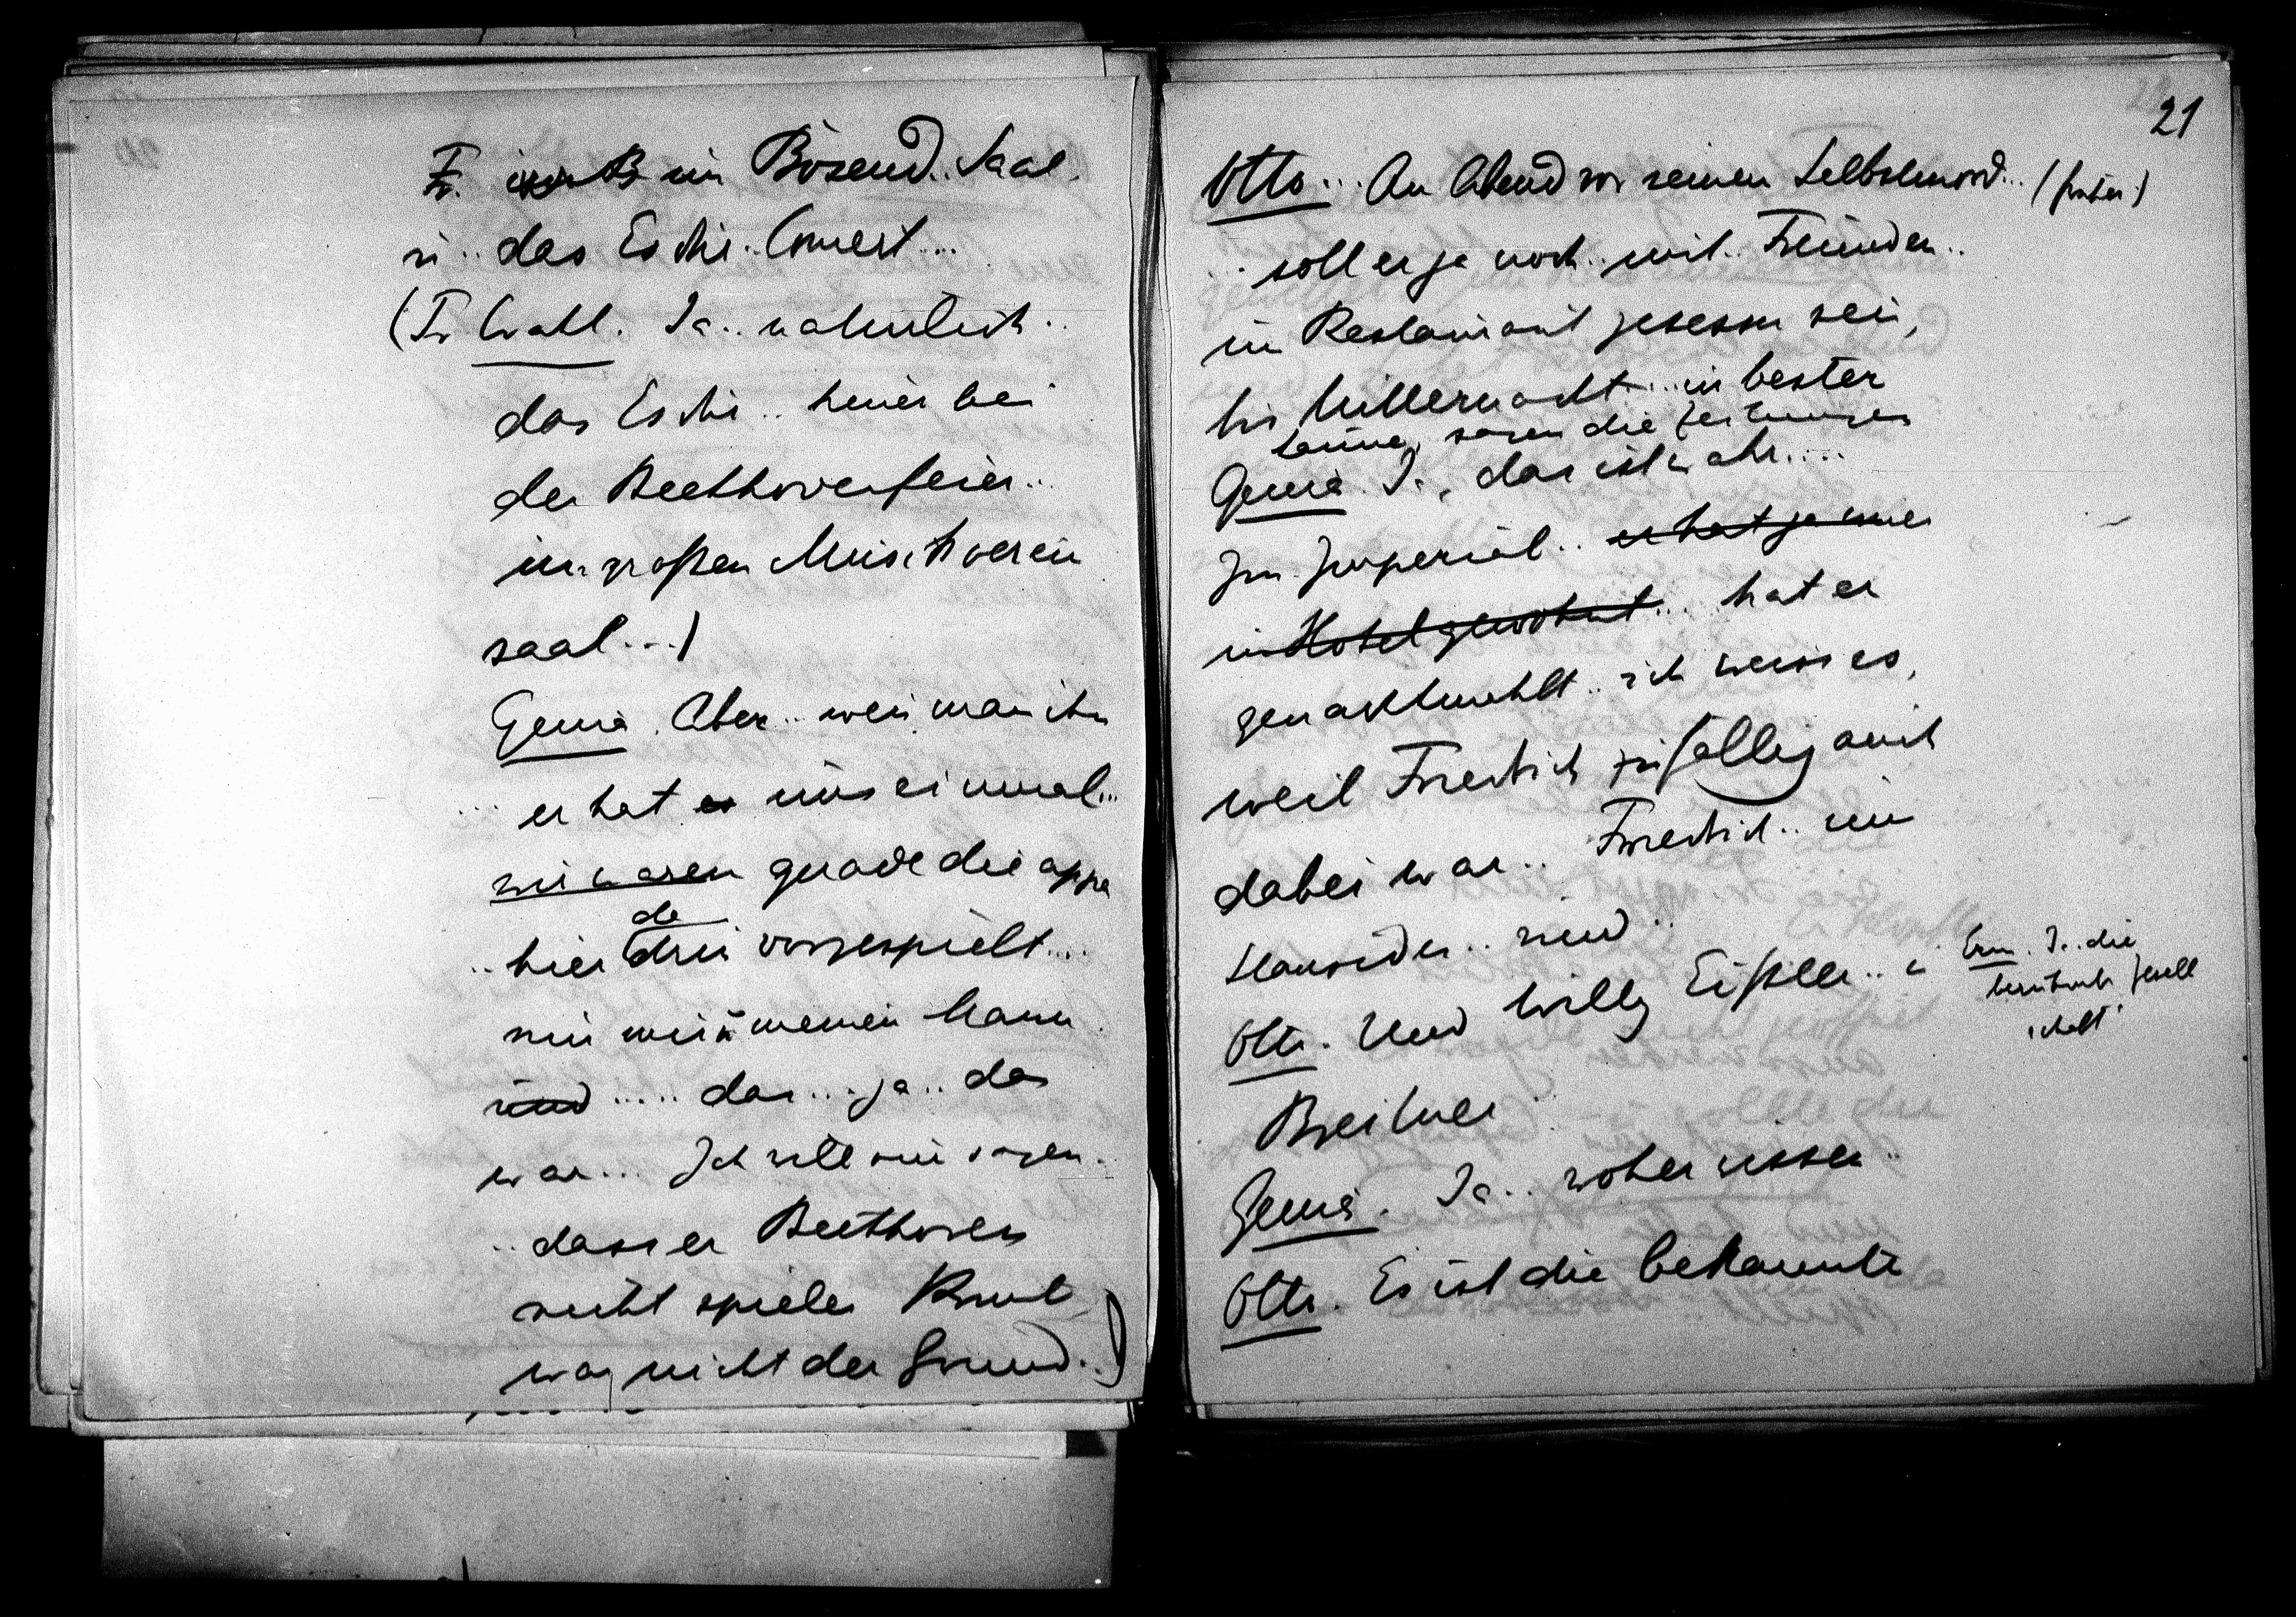 F. im Bösend. Saal.
u.. das Es dur. Concert....
(Fr Wahl. Ja.. natürlich..
das Es dur.. heuer bei
der Beethovenfeier...
im großen Musikverein
saal...)
Genia. Aber.. wenn man ihn
... er hat es uns einmal...
wir waren gerade die
da
.. hier drin vorgespielt....
mir und meinem Mann.
und ..... das... ja.. das
war... Ich will nur sagen.
.. dass er Beethoven
nicht spielen konnt
war nicht der Grund..)
21
Otto... Am Abend vor seinem Selbstmord... (früher)
... soll er ja noch.. mit.. Freunden..
im Restaurant gesessen sein,
bis Mitternacht.... in bester
Laune, sagen die Zeitungen
Genia. Ja, das ist wahr.....
Im Imperial.. er hat ja immer
im Hotel gewohnt... hat er
genachtmahlt.. ich weiss es,
weil Friedrich zufällig auch
dabei war.. Friedrich.. und
.. und..
Otto. Und Willy Eißler.. u
Ern. Ja.. die
berühmte Gesell
schaft.
Genia. Ja.. woher wissen..
Otto. Es ist die bekannte